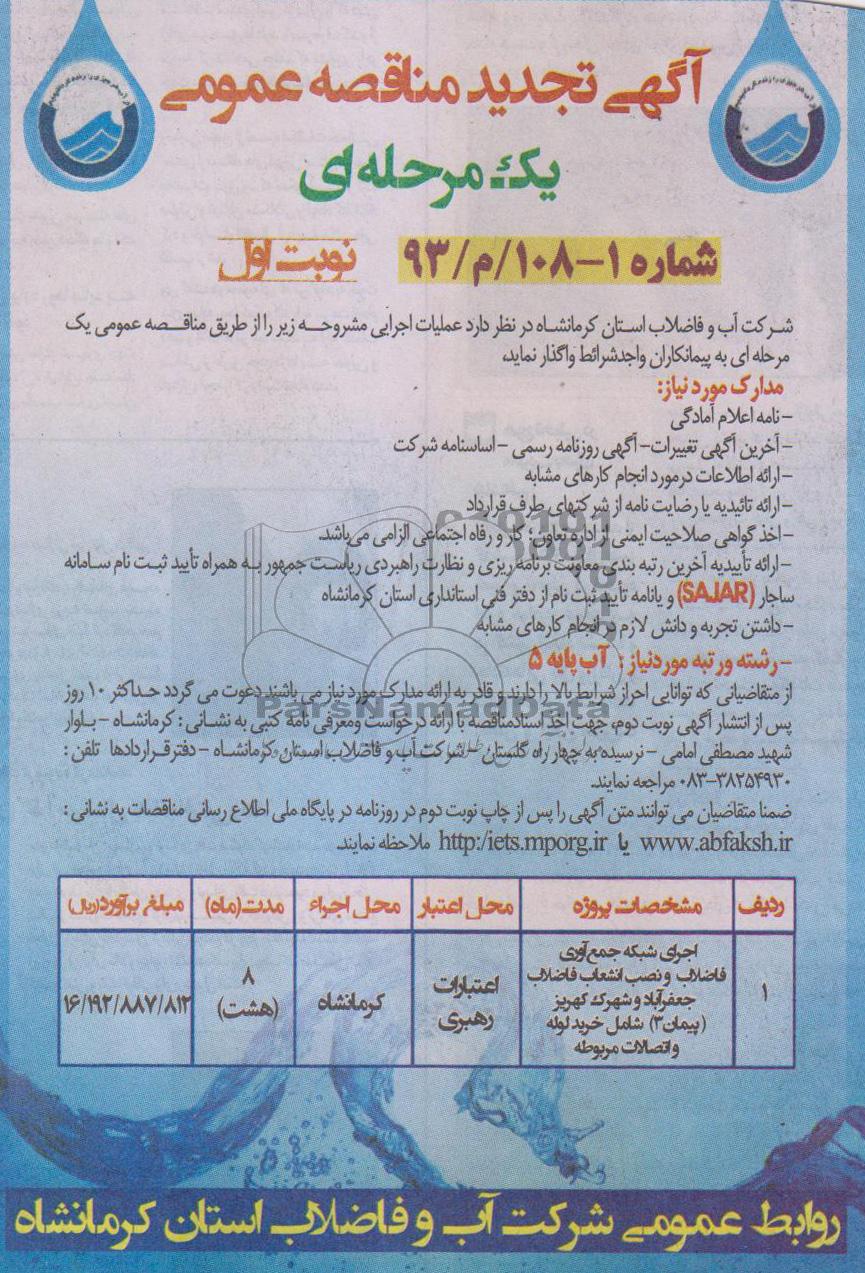 آگهی تجدید مناقصه عمومی
یک مرحله ای
شماره ۱-۱۰۸/م/۹۳ نوبت اول
شرکت آب و فاضلاب استان کرمانشاه در نظر دارد عملیات اجرایی مشروحه زیر را از طریق مناقصه عمومی یک
مرحله ای به پیمانکاران واجدشرائط واگذار نماید.
مدارک مورد نیاز:
- نامه اعلام آمادگی
- آخرین آگهی تغییرات- آگهی روزنامه رسمی - اساسنامه شرکت
- ارائه اطلاعات درمورد انجام کارهای مشابه
- ارائه تائیدیه یا رضایت نامه از شرکتهای طرف قرارداد
- اخذ گواهی صلاحیت ایمنی از اداره تعاون؛ کار و رفاه اجتماعی الزامی می باشد.
- ارائه تأییدیه آخرین رتبه بندی معاونت برنامه ریزی و نظارت راهبردی ریاست جمهور به همراه تأیید ثبت نام سامانه
ساجار (SAJAR) و یانامه تأیید ثبت نام از دفتر فنی استانداری استان کرمانشاه
- داشتن تجربه و دانش لازم در انجام کارهای مشابه
- رشته ورتبه موردنیاز : آب پایه ۵
از متقاضیانی که توانایی احراز شرایط بالا را دارند و قادر به ارائه مدارک مورد نیاز می باشند دعوت می گردد حداکثر ۱۰ روز
پس از انتشار آگهی نوبت دوم، جهت اخذ اسنادمناقصه با ارائه درخواست ومعرفی نامه کتبی به نشانی : کرمانشاه - بلوار
شهید مصطفی امامی - نرسیده به چهار راه گلستان - شرکت آب و فاضلاب استان کرمانشاه - دفترقراردادها تلفن :
۰۸۳-۳۸۲۵۴۹۳۰ مراجعه نمایند.
ضمنا متقاضیان می توانند متن آگهی را پس از چاپ نوبت دوم در روزنامه در پایگاه ملی اطلاع رسانی مناقصات به نشانی :
www.abfaksh.ir یا http:/iets.mporg.ir ملاحظه نمایند.
ردیف مشخصات پروژه محل اعتبار محل اجراء مدت(ماه) مبلغ برآورد(ریال)
۱ اجرای شبکه جمع آوری
فاضلاب و نصب انشعاب فاضلاب
جعفرآباد و شهرک کهریز
(پیمان۳) شامل خرید لوله
و اتصالات مربوطه
اعتبارات
رهبری
کرمانشاه
۸
(هشت)
۱۶/۱۹۲/۸۸۷/۸۱۲
روابط عمومی شرکت آب و فاضلاب استان کرمانشاه
ParsNamadData